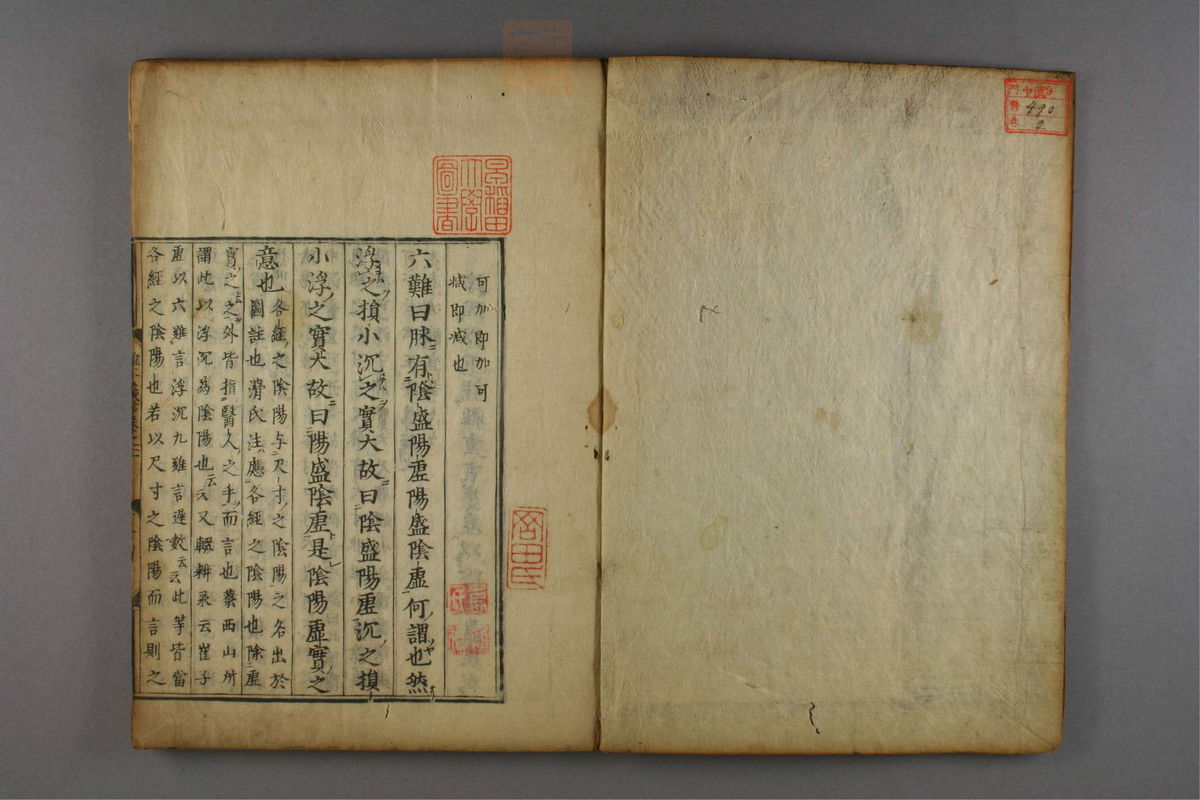 490
2
早稲田
大學
圖書
可加即加可
减即减也
六難曰脉有陰盛陽虚陽盛陰虚何謂也然
浮之損小沉之實大故曰陰盛陽虚沉之損
小浮之實大故曰陽盛陰虚是陰陽虚實之
意也
各經之陰陽与尺寸之陰陽之名出於
圖註也滑氏法應各經之陰陽也除虚
實之云之外皆指醫人之手而言也蔡西山所
謂此以浮沉為陰陽也云云又輟耕录云崔子
虚以六難言浮沉九難言遲数云云此等皆當
各經之陰陽也若以尺寸之陰陽而言則之